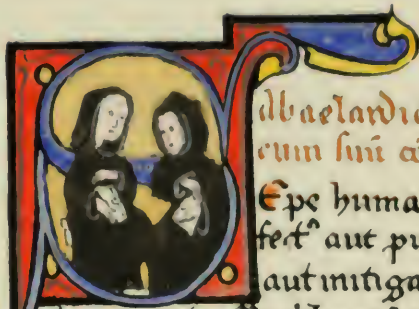 Abaelardi
cum suū
Epe huma
fect⁹ aut pu
aut mitiga